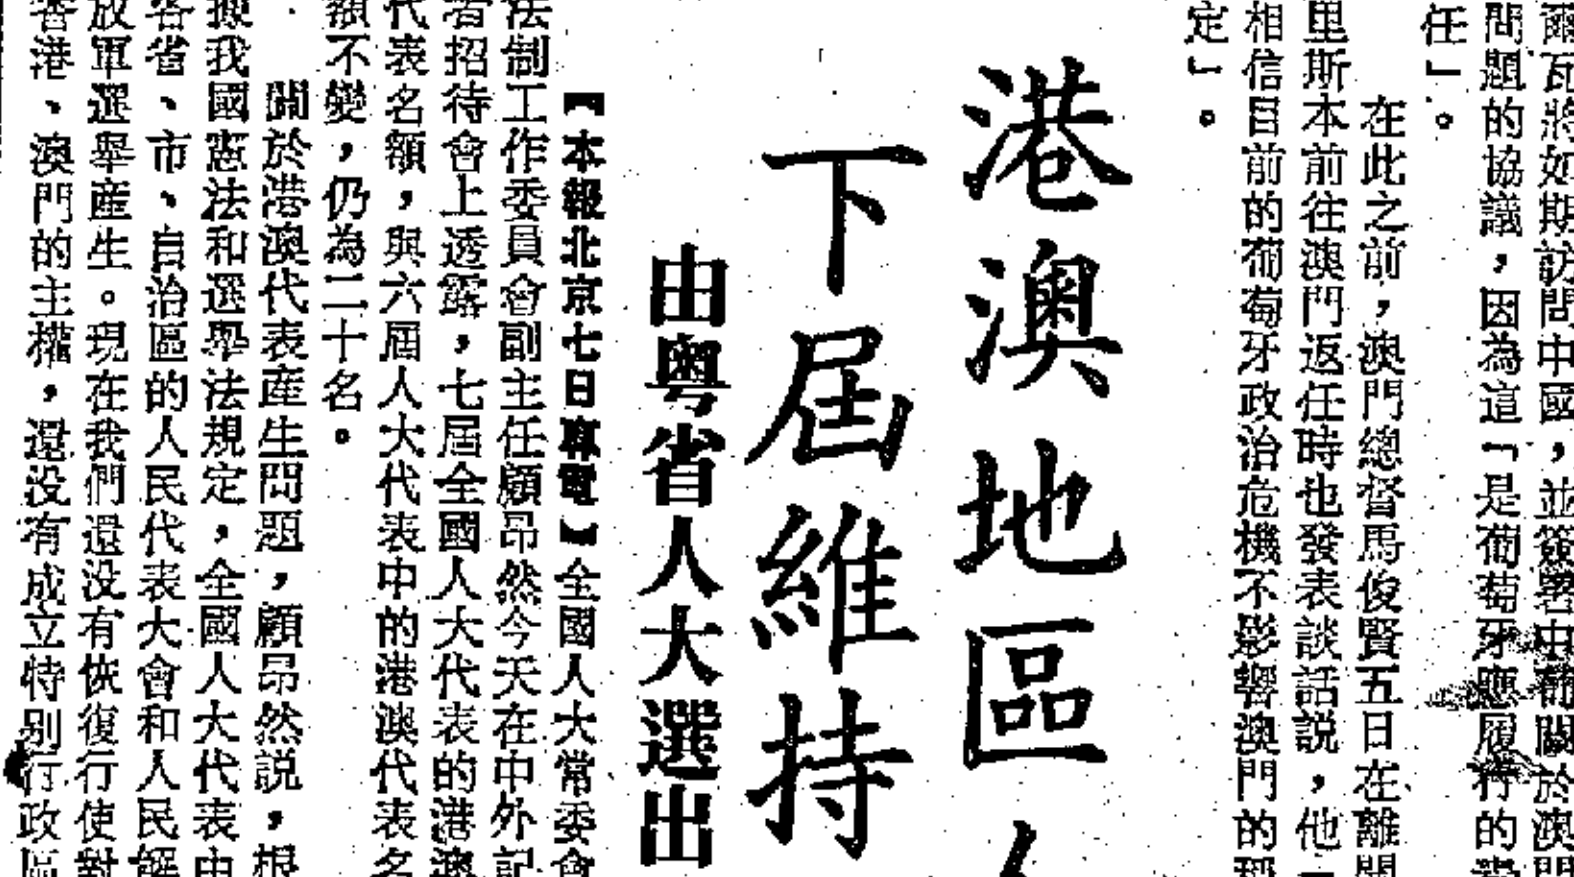 爾瓦將如期訪問中國，並簽署中葡關於澳門
問題的協議，因為這「是葡萄牙應履行的責
任」。
在此之前，澳門總督馬俊賢五日在離開
里斯本前往澳門返任時也發表談話説，他
相信目前的葡萄牙政治危機不影響澳門的
定」。
港澳地區
下屆維持
由粤省人大選出
【本報北京七日專電】全國人大常委會
法制工作委員會副主任顧昂然今天在中外記
者招待會上透露，七屆全國人大代表的港澳
代表名額，與六屆人大代表中的港澳代表名
額不變，仍為二十名。
關於港澳代表產生問題，顧昂然説，根
據我國憲法和選舉法規定，全國人大代表由
各省、市、自治區的人民代表大會和人民解
放軍選舉產生。現在我們還没有恢復行使對
香港、澳門的主權，還没有成立特别行政區